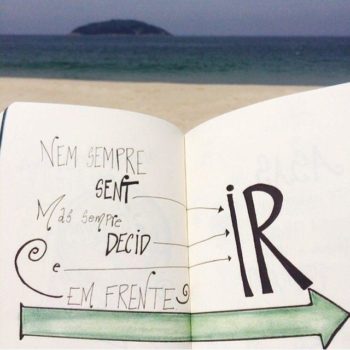 NEM SEMPRE
SENT
Mas sempre
DECID
e
EM FRENTE
iR